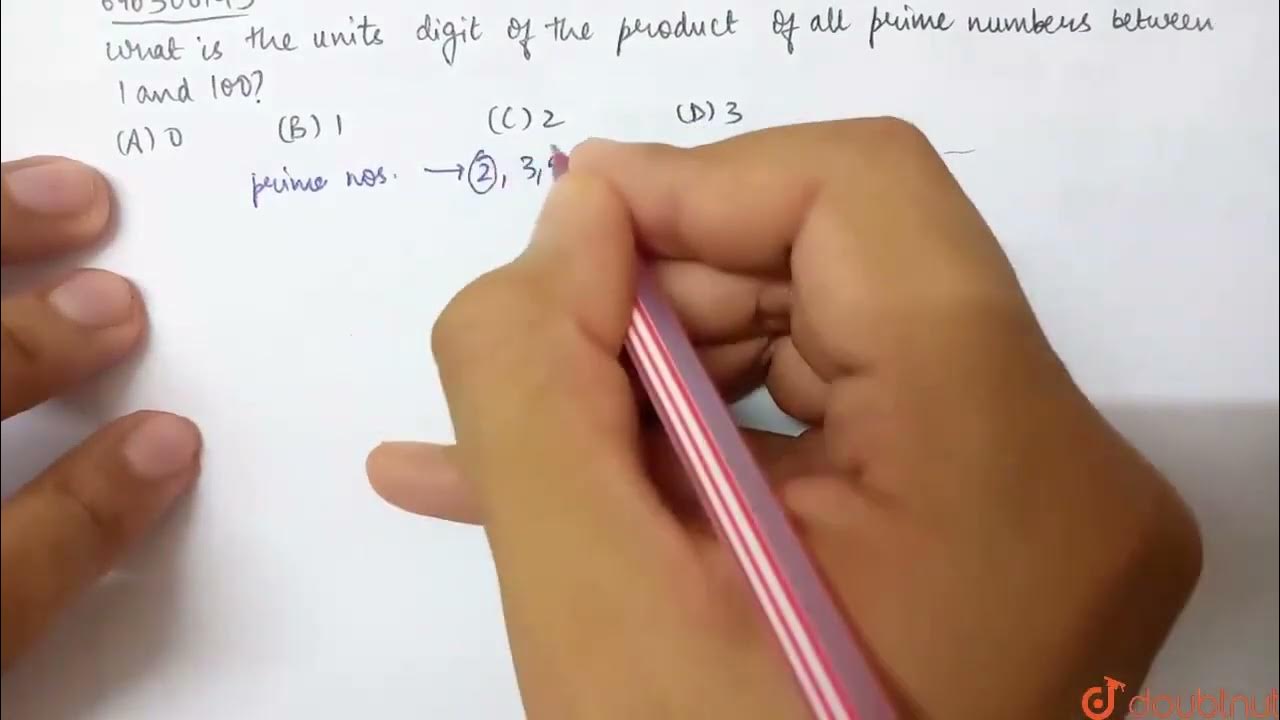 What is the units digit of the product of all prime numbers between
1 and 100?
(A) 0 (B) 1 (C) 2 (D) 3
prime nos. → 2, 3,
doubtnut